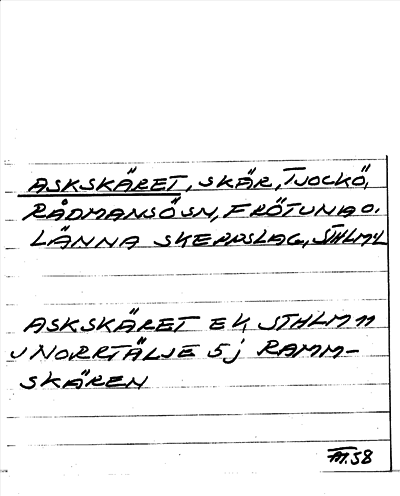 ASKSKÄRET, SKÄR, TJOCKÖ,
RÅDMANSÖSN, FRÖTUNA O.
LÄNNA SKEPPSLAG, STHLM L
ASKSKÄRET EK, STHLM 11
NORRTÄLJE 5j RAMM-
SKÄREN
58